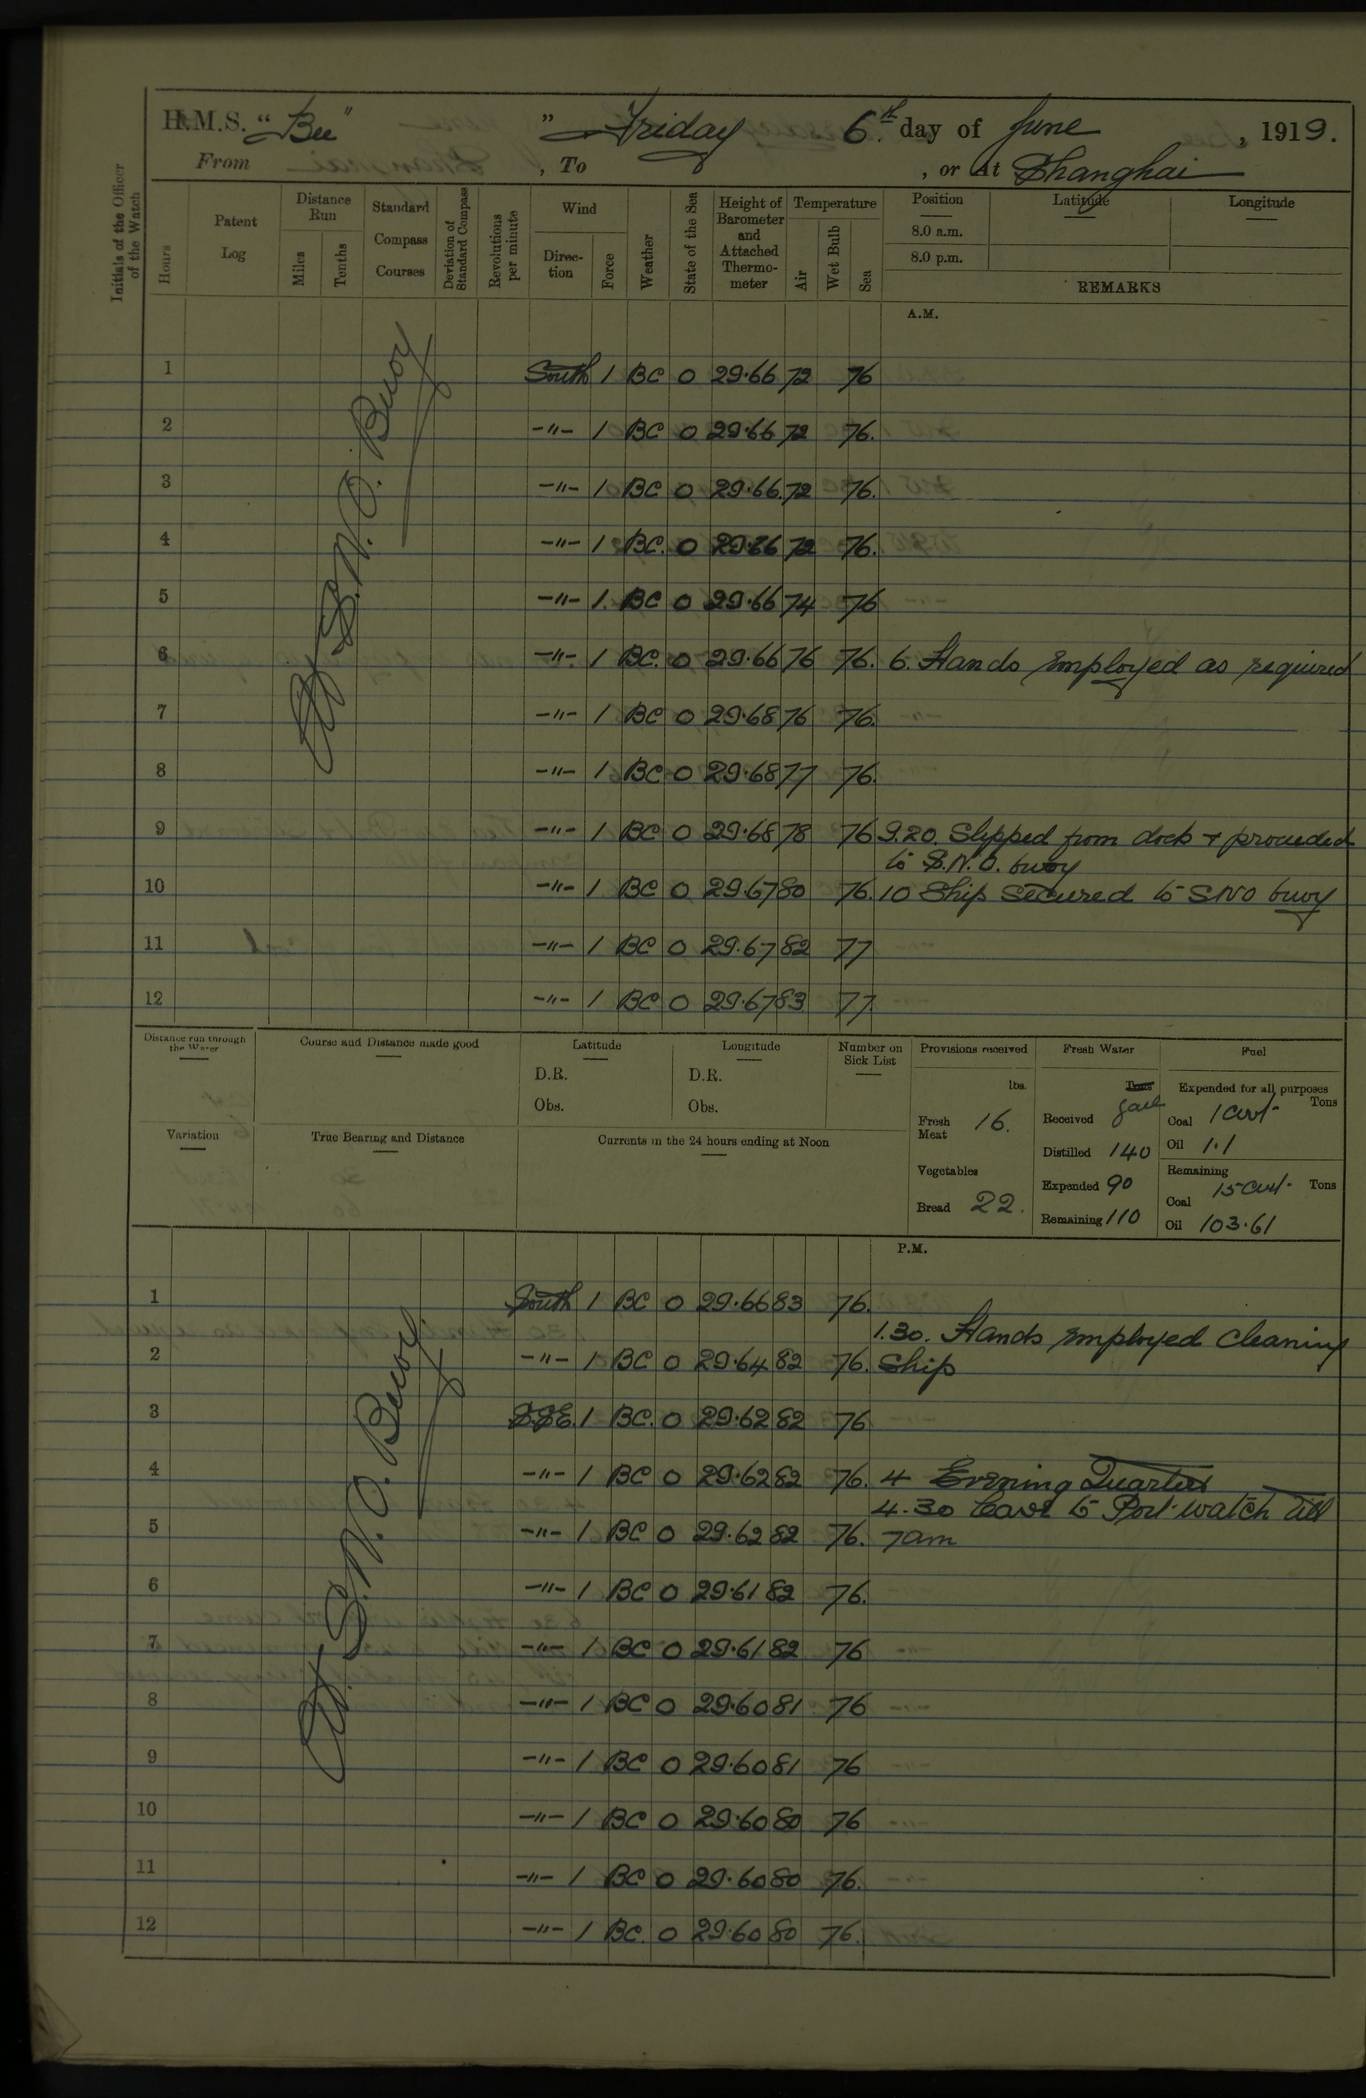 H.M.S. "Bee" " Friday 6th day of June, 1919.
From , To , or At Shanghai
Initials of the Officer of the Watch
Hours
Patent Log
Distance Run
Miles
Tenths
Standard Compass Courses
Deviation of Standard Compass
Revolutions per minute
Wind
Direction
Force
Weather
State of the Sea
Height of Barometer and Attached Thermometer
Temperature
Air
Wet Bulb
Sea
Position
8.0 a.m.
8.0 p.m.
Latitude
Longitude
REMARKS
A.M.
At S.N.O. Buoy
1 South 1 BC 0 29.66 72 76
2 -"- 1 BC 0 29.66 72 76.
3 -"- 1 BC 0 29.66. 72 76.
4 -"- 1 BC. 0 29.66 72 76.
5 -"- 1. BC 0 29.66 74 76
6 -"- 1 BC. 0 29.66 76 76. 6. Hands employed as required
7 -"- 1 BC 0 29.68 76 76.
8 -"- 1 BC 0 29.68 77 76.
9 -"- 1 BC 0 29.68 78 76 9.20. Slipped from dock + proceeded
to S.N.O. buoy
10 -"- 1 BC 0 29.67 80 76. 10 Ship secured to SNO buoy
11 -"- 1 BC 0 29.67 82 77
12 -"- 1 BC 0 29.67 83 77.
Distance run through the Water
Course and Distance made good
Latitude
D.R.
Obs.
Longitude
D.R.
Obs.
Number on Sick List
Variation
True Bearing and Distance
Currents in the 24 hours ending at Noon
Provisions received
lbs.
Fresh Meat 16.
Vegetables
Bread 22.
Fresh Water
Tons
Received galls
Distilled 140
Expended 90
Remaining 110
Fuel
Expended for all purposes
Coal 1 cwt. Tons
Oil 1.1
Remaining
Coal 15 cwt. Tons
Oil 103.61
P.M.
At S.N.O. Buoy.
1 South 1 BC 0 29.66 83 76.
1.30. Hands employed cleaning
2 -"- 1 BC 0 29.64 82 76. Ship
3 S.S.E. 1 BC. 0 29.62 82 76
4 -"- 1 BC 0 29.62 82 76. 4 Evening Quarters
4.30 Leave to Port watch till
5 -"- 1 BC 0 29.62 82 76. 7am
6 -"- 1 BC 0 29.61 82 76.
7 -"- 1 BC 0 29.61 82 76
8 -"- 1 BC 0 29.60 81 76
9 -"- 1 BC 0 29.60 81 76
10 -"- 1 BC 0 29.60 80 76
11 -"- 1 BC 0 29.60 80 76.
12 -"- 1 BC. 0 29.60 80 76.